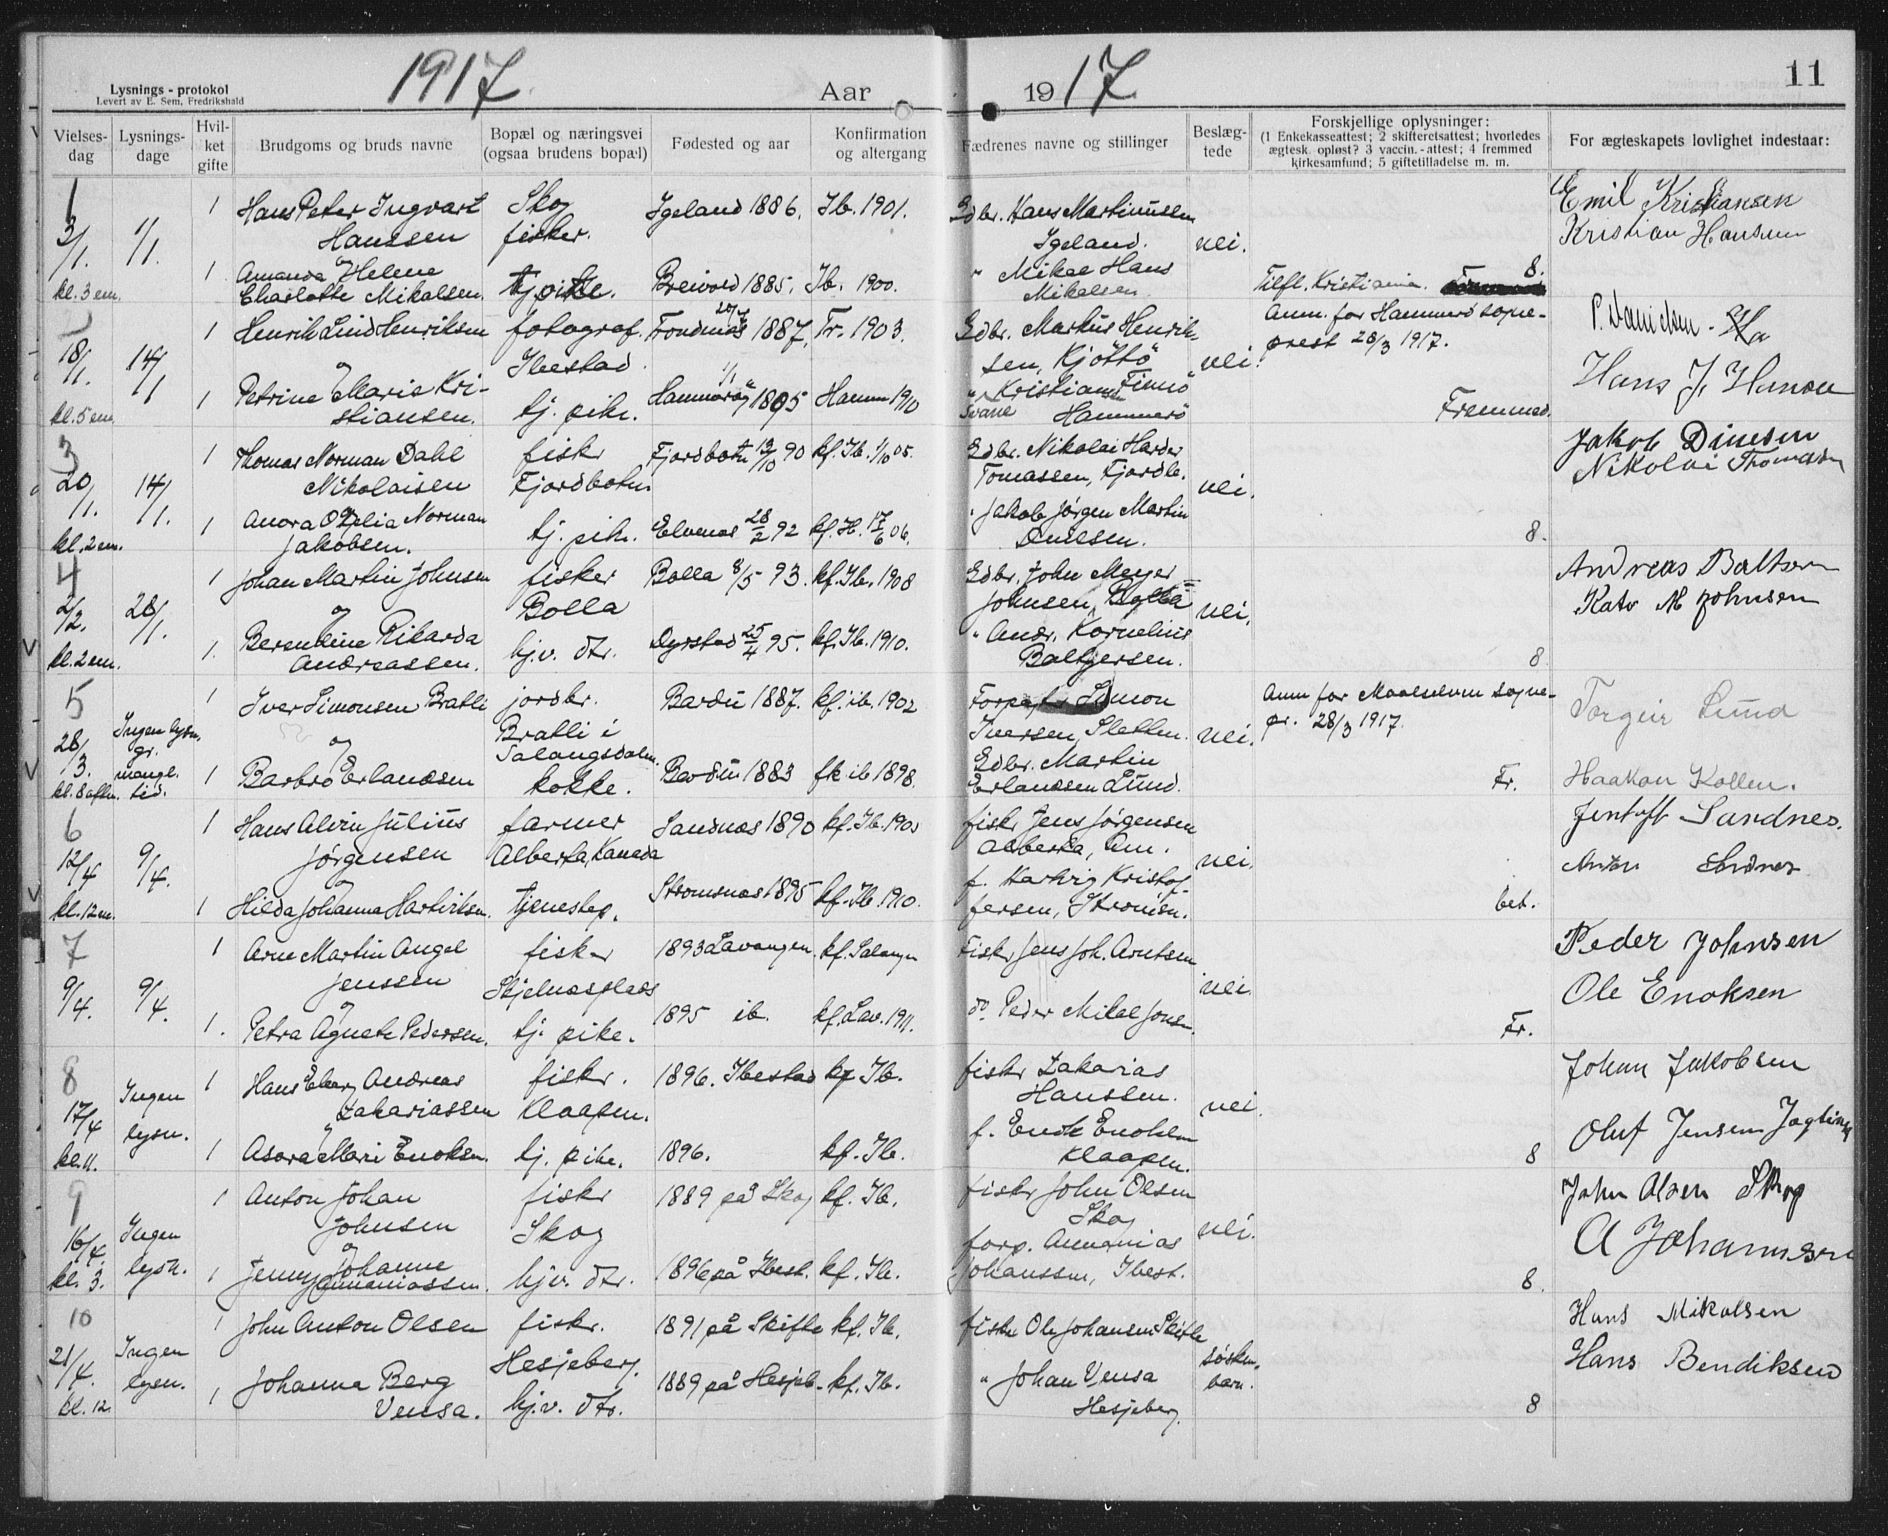 1917
Aar 1917
11
Lysnings - protokol
Levert av E. Sem, Fredrikshald
Vielses-dag
Lysnings-dage
Hvil-ket gifte
Brudgoms og bruds navne
Bopæl og næringsvei (ogsaa brudens bopæl)
Fødested og aar
Konfirmation og altergang
Fædrenes navne og stillinger
Beslæg-tede
Forskjellige oplysninger:
(1 Enkekasseattest; 2 skifteretsattest; hvorledes
ægtesk. opløst? 3 vaccin.-attest; 4 fremmed
kirkesamfund; 5 giftetilladelse m. m.
For ægteskapets lovlighet indestaar:
1 1 Hans Peter Ingvart Skog Igeland 1886. Ib. 1901. Gdbr. Hans Martinussen Emil Kristiansen
3/1. 1/1. Hanssen fisker. Igeland. nei. Kristian Hansen
og
1 Amanda Helene " Mikal Hans 8.
kl. 3 em. Charlotte Mikalsen. tj. pike. Breivold 1885. Ib. 1900. Mikalsen Tilfl. Kristiania.
2 1 Henrik Lind Henriksen fotograf. Trondenæs 1887. Tr. 1903. Gdbr. Markus Henrik- Anm. for Hammerø sogne- P. Danielsen.
18/1. 14/1 og Ibestad. sen, Kjøttø nei. prest 28/3 1917. Hans J. Hansen
1 Petrine Marie Kri- 1/1 " Kristian Finnø
kl. 5 em. stiansen. tj. pike. Hammerø 1895 Hamm 1910 Svane Hammerø Fremmed.
3 1 Thomas Norman Dahl fisker Fjordbotn 13/10 90 kf. Ib. 1/10 05. Gdbr. Nikolai Harder Jakob Dinesen
20/1. 14/1. Nikolaisen Fjordbotn Tomassen, Fjordb. nei. Nikolai Thomassen
og
1 Anora Ovelia Norman Jakob Jørgen Martin
kl. 2 em. Jakobsen. tj. pike. Elvenes 28/2 92 kf. H. 17/6 06. Dinesen. 8.
4 1 Johan Martin Johnsen fisker Bolla 8/5 93. kf. Ib. 1908 Gdbr. John Meyer Andreas Baltsersen
2/2. 28/1. og Bolla Johnsen, Bolla nei. Kato M Johnsen
1. Berentine Rikarda " Andr. Kornelius
kl. 2 em. Andreassen. hj.v. dtr. Dyrstad 25/4 95. kf. Ib. 1910. Baltzersen. 8
5 1 Iver Simonsen Bratli jordbr. Bardu 1887. kf. ib. 1902 Simon Anm for Maalselven sogne- Torgeir Lund
28/3. Ingen lysn. gr. og Bratli i Iversen, Sletten. nei. pr. 28/3 1917.
mangl. 1 Barbro Erlandsen Salangsdalen. Bardu 1883 fk ib 1898. Gdbr. Martin Fr. Haakon Kollen.
kl. 8 aften. tid. kokke. Erlandsen Lund.
6 1 Hans Alvin Julius farmer Sandnæs 1890 kf. Ib. 1905 fisker Jens Jørgensen Jentoft Sandnes.
12/4 9/4. Jørgensen Alberta, Kanada Alberta, Am. nei. Anton Sandnes
og f. Hartvig Kristof-
kl. 12 em. 1 Hilda Johanna Hartviksen. tjenestep. Strømsnæs 1895 kf. Ib. 1910. fersen, Strømsn. bet.
7 1 Arne Martin Angel fisker 1893 Lavangen. kf. Salangen Fisker Jens Joh. Arntsen Peder Johnsen
9/4. 9/4. Jenssen Skjelnæsplads nei. Ole Enoksen
og
1. Petra Agnete Pedersen. tj. pike. 1895 ib. kf. Lav. 1911. do Peder Mikal Jonsen. Fr.
8 1 Hans Andreas fisker. 1896. Ibestad kf Ib. fisker Zakarias Johan Jakobsen
17/4 Ingen Zakariassen Klaapen. Hanssen. nei.
lysn. og f. Enok Enoksen Oluf Jensen
kl. 11. 1 Asora Marie Enoksen. tj. pike. 1896. kf. Ib. Klaapen. 8
9 1 Anton Johan fisker 1889 på Skog kf. Ib. fisker John Olsen John Olsen Skog
16/4. Ingen Johnsen Skog Skog nei. A Johannsen
og forp. Annanias
kl. 3. lysn. 1 Jenny Johanne hjv. dtr. 1896 på Ibest. kf. Ib. Johanssen, Ibest. 8.
Annaniassen.
10 1 John Anton Olsen fisker. 1891 på Skifte kf. Ib. fisker Ole Johansen Skifte Hans Mikalsen
21/4. Ingen Hesjeberg. søsken- Hans Bendiksen
lysn. 1 Johanna Berg 1889 på Hesjeb. kf. Ib. " Johan Vensa barn.
kl. 12. Vensa. hj.v. dtr. Hesjeberg. 8